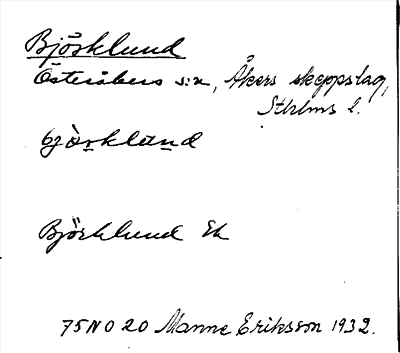 Björklund
Österåkers s:n, Åkers skeppslag,
Sthlms l.
björklund
Björklund Ek
75NO20 Manne Eriksson 1932.